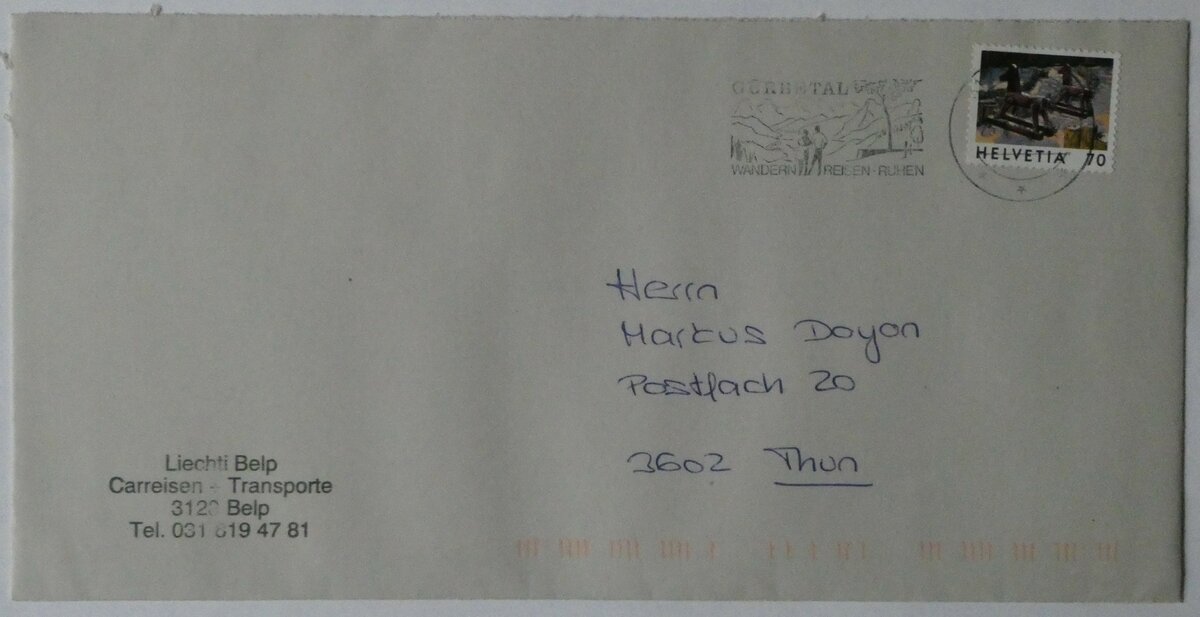 GÜRBETAL
WANDERN REISEN - RUHEN
HELVETIA 70
Herrn
Markus Doyon
Postfach 20
3602 Thun
Liechti Belp
Carreisen - Transporte
3123 Belp
Tel. 031 819 47 81